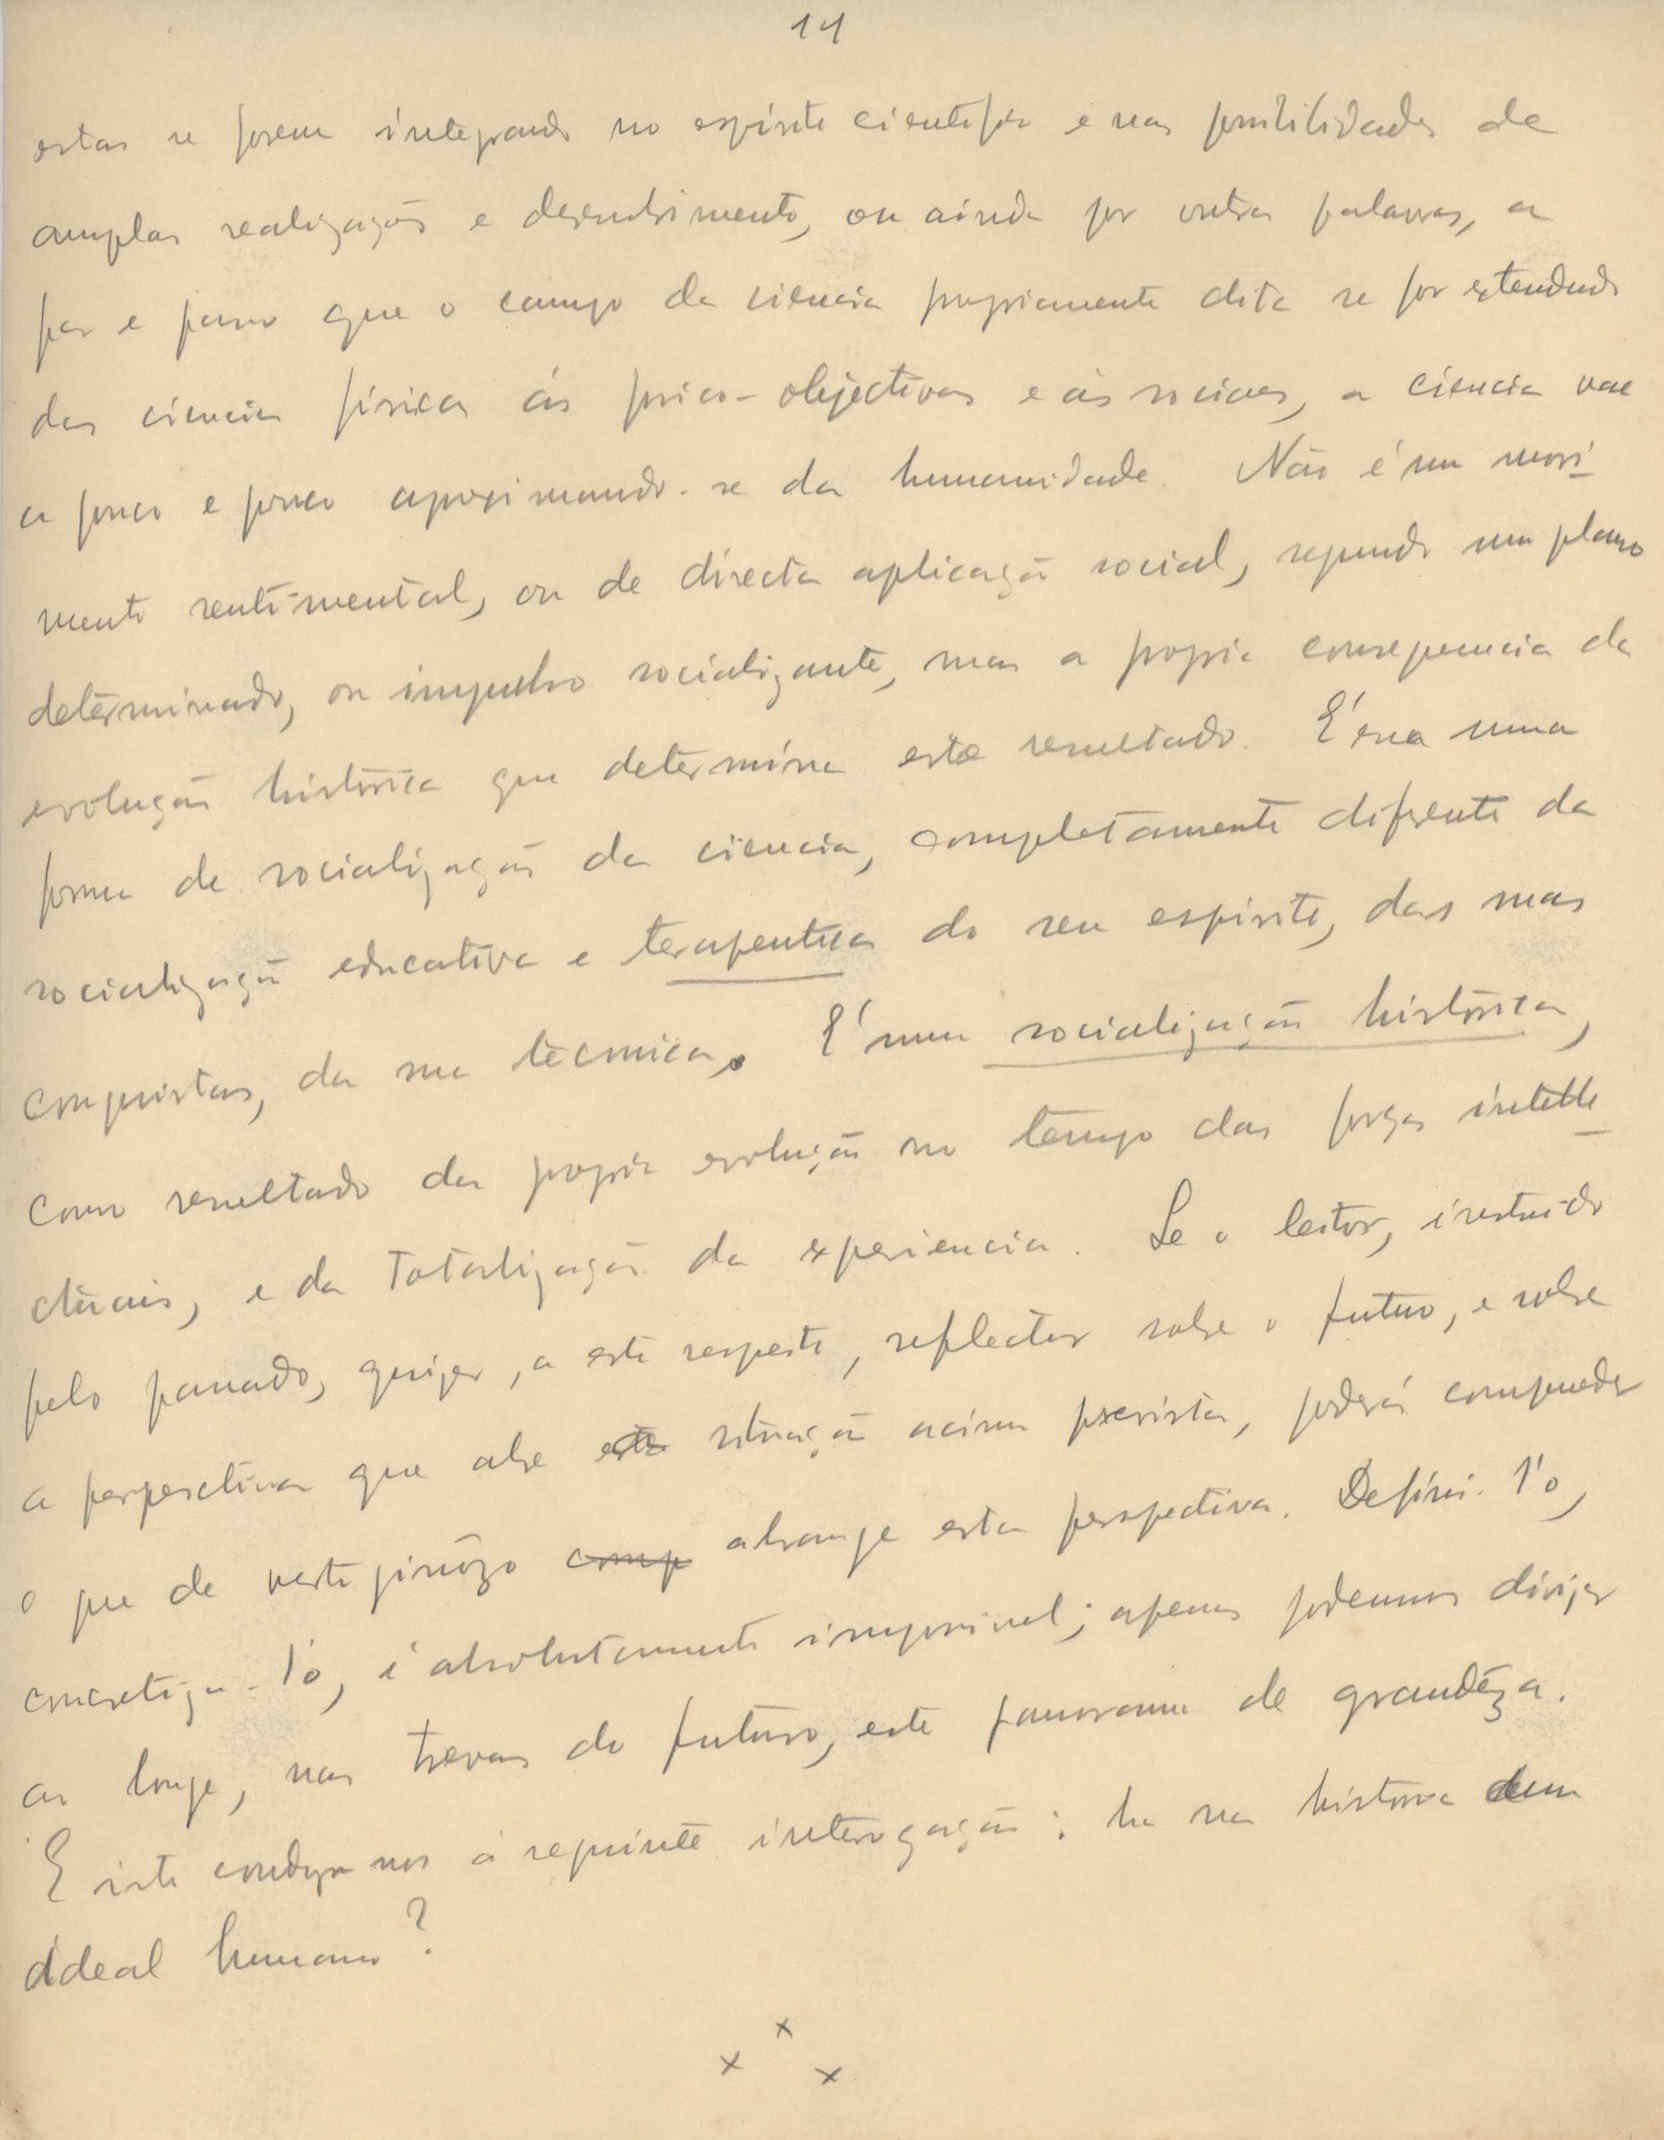 14
estas se forem integrando no espirito cientifico e nas possibilidades de
amplas realizações e descobrimento, ou ainda por outras palavras, a
par e passo que o campo da ciencia propriamente dita se for estendendo
das ciencias fisicas ás psico-objectivas e ás sociaes, a ciencia vae
a pouco e pouco aproximando-se da humanidade. Não é um movi
mento sentimental, ou de directa aplicação social, segundo um plano
determinado, ou impulso socializante, mas a propria consequencia da
evolução histórica que determina este resultado. É essa uma
forma de socialização da ciencia, completamente diferente da
socialização educativa e terapeutica do seu espirito, das suas
conquistas, da sua técnica. É uma socialização histórica,
como resultado da propria evolução no tempo das forças intelle
ctuais, e da totalização da experiencia. Se o leitor, instruido
pelo passado, quizer, a este respeito, reflectir sobre o futuro, e sobre
a perspectiva que abre esta situação acima prevista, poderá compreender
o que de vertiginózo comp abrange esta perspectiva. Defini-l'o,
concretiza-l'o, é absolutamente impossivel; apenas podemos divisar
ao longe, nas trevas do futuro, este panorama de grandêza.
E isto conduz-nos á seguinte interrogação: ha na historia um
ideal humano?
x
x x